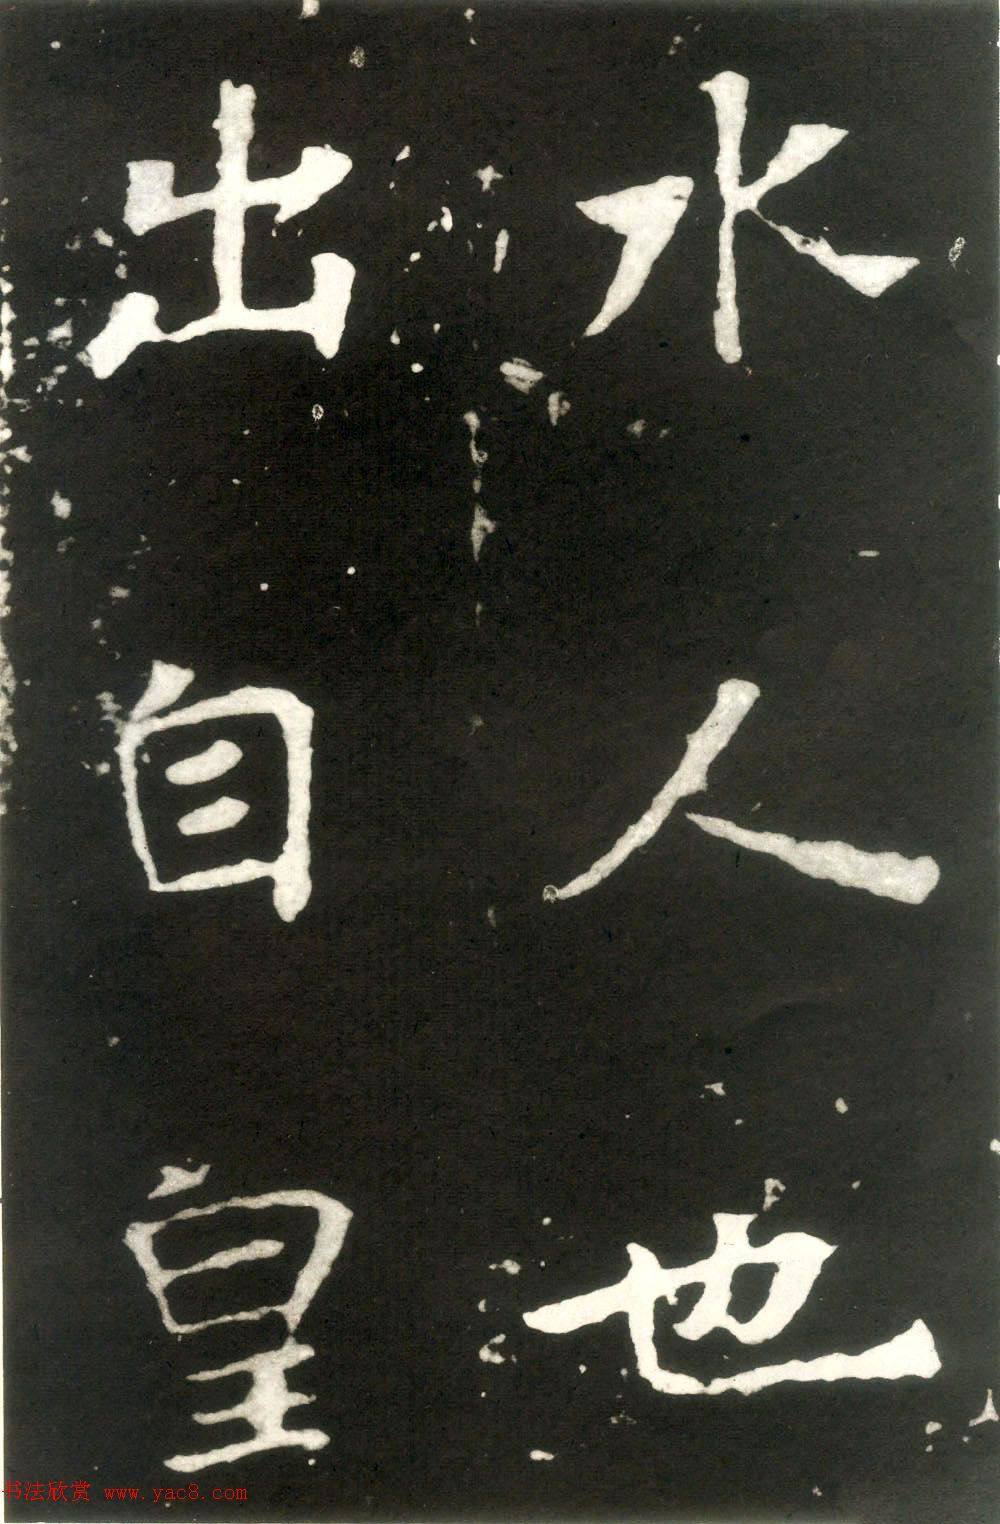 水人也
出自皇
书法欣赏 www.yac8.com